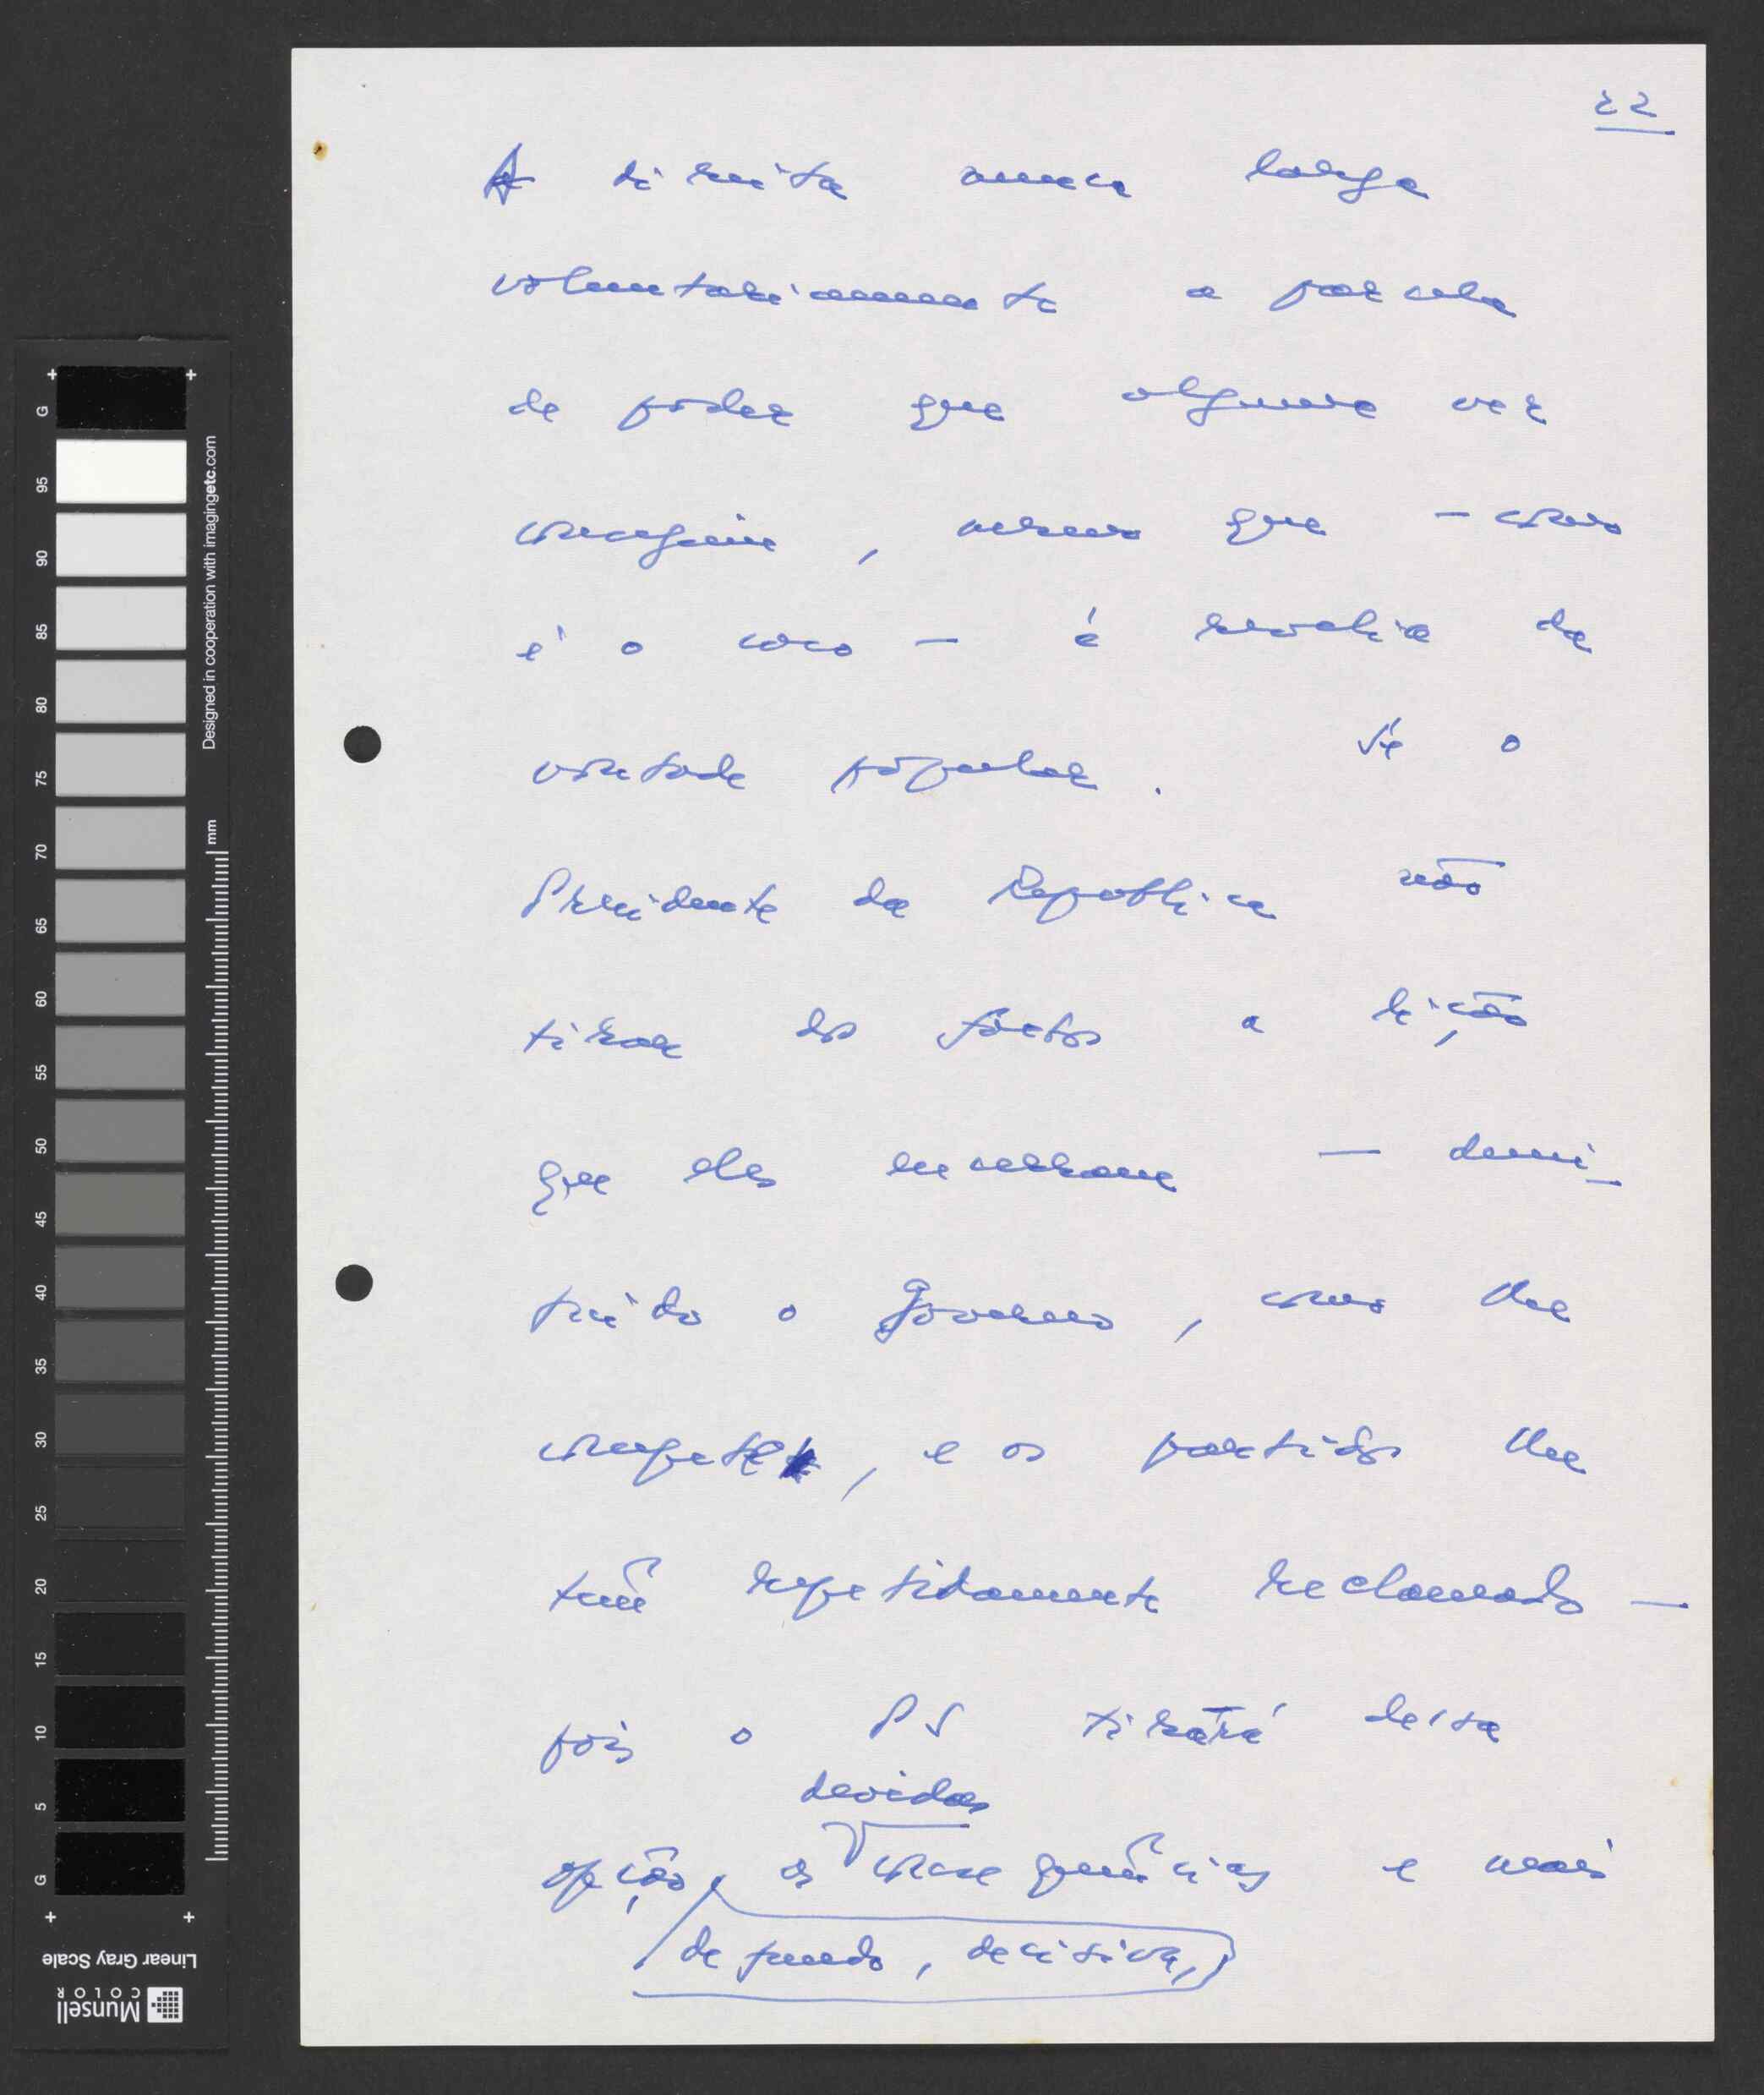 22
A direita nunca larga
voluntariamente a parcela
de poder que alguma vez
consegue, mesmo que - como
é o caso - à revelia da
vontade popular. Se o
Presidente da República não
tirar dos factos a lição
que eles encerram — demi-
tindo o Governo, como lhe
compete, e os partidos lhe
têm repetidamente reclamado —
pois o PS tirará dessa
devidas
opção, as consequências e mais
de fundo, decisiva,
G 95 90 85 80 75 70 65 60 55 50 45 40 35 30 25 20 15 10 5 G
Designed in cooperation with imagingetc.com
mm
Linear Gray Scale
Munsell
COLOR